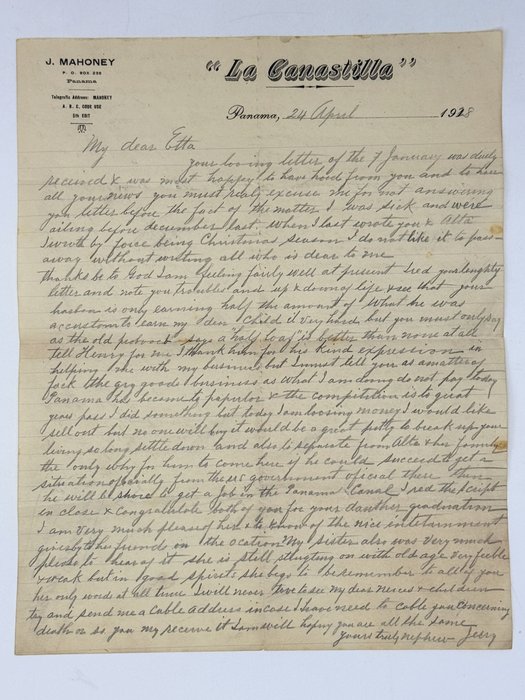 J. MAHONEY
P. O. BOX 238
Panama
Telegrafic Address: MAHONEY
A. B. C. CODE USE
5th EDIT
"La Canastilla"
Panama, 24 April 1928
My dear Etta
your loving letter of the 7 January was duely
received & was most happy to have heed from you and to hear
all your news you must realy excuse me for not answering
you letter before the fact of the matter I was sick and were
ailing before december last. when I last wrote you & Alta
I wroth by force being Christmas season I do not like it to pass
away without writing all who is dear to me
thanks be to God I am feeling fairly well at present I red your lenghty
letter and note you troubles and up & down of life & see that your
hasban is only earning half the amount of what he was
accustom to earn my dear Child it very hard but you must only say
as the old proverb says a half loaf is better than none at all
tell Henry for me I thank him for his kind expression in
helping me with my business but I must tell you as a matter of
fack the dry goods business as what I am doing do not pay today
Panama has became to papulor & the compitition is to great
years pass I did something but today I am loosing money I would like
sell out but no one will buy it would be a great pitty to break up your
living so long settle down and also to separate from Alta & her family
the only why for him to come here if he could succeed to get a
situation from the US government oficial there then
he will be shore to get a job in the Panama Canal I red the script
in close & Congratulate both of you for your daughter graduation
I am very much please of her & to know of the nice entertainment
given by the friends on the ocation My sister also was very much
please to hear of it she is still strugting on with old age very feeble
& weak but in good spirits she begs to be remember to all of you
her only words at all time I will never live to see my dear neices & children
try and send me a Cable address in case I have need to cable you concerning
death or so you my receive it I am will hoping you are all the same
yours truly nephew Jerry